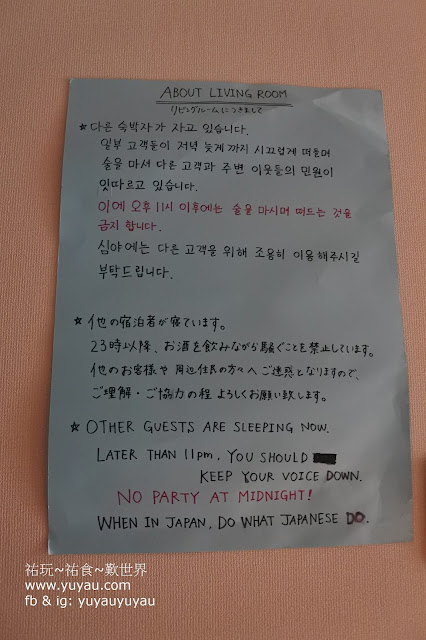 ABOUT LIVING ROOM
リビングルームにつきまして
★ 다른 숙박자가 자고 있습니다.
일부 고객들이 저녁 늦게 까지 시끄럽게 떠들며
술을 마셔 다른 고객과 주변 이웃들의 민원이
잇따르고 있습니다.
이에 오후 11시 이후에는 술을 마시며 떠드는 것을
금지 합니다.
심야에는 다른 고객을 위해 조용히 이용해주시길
부탁드립니다.
★ 他の宿泊者が寝ています。
23時以降、お酒を飲みながら騒ぐことを禁止しています。
他のお客様や周辺住民の方々へご迷惑となりますので、
ご理解・ご協力の程よろしくお願い致します。
★ OTHER GUESTS ARE SLEEPING NOW.
LATER THAN 11pm, YOU SHOULD
KEEP YOUR VOICE DOWN.
NO PARTY AT MIDNIGHT!
WHEN IN JAPAN, DO WHAT JAPANESE DO.
祐玩~祐食~歎世界
www.yuyau.com
fb & ig: yuyauyuyau